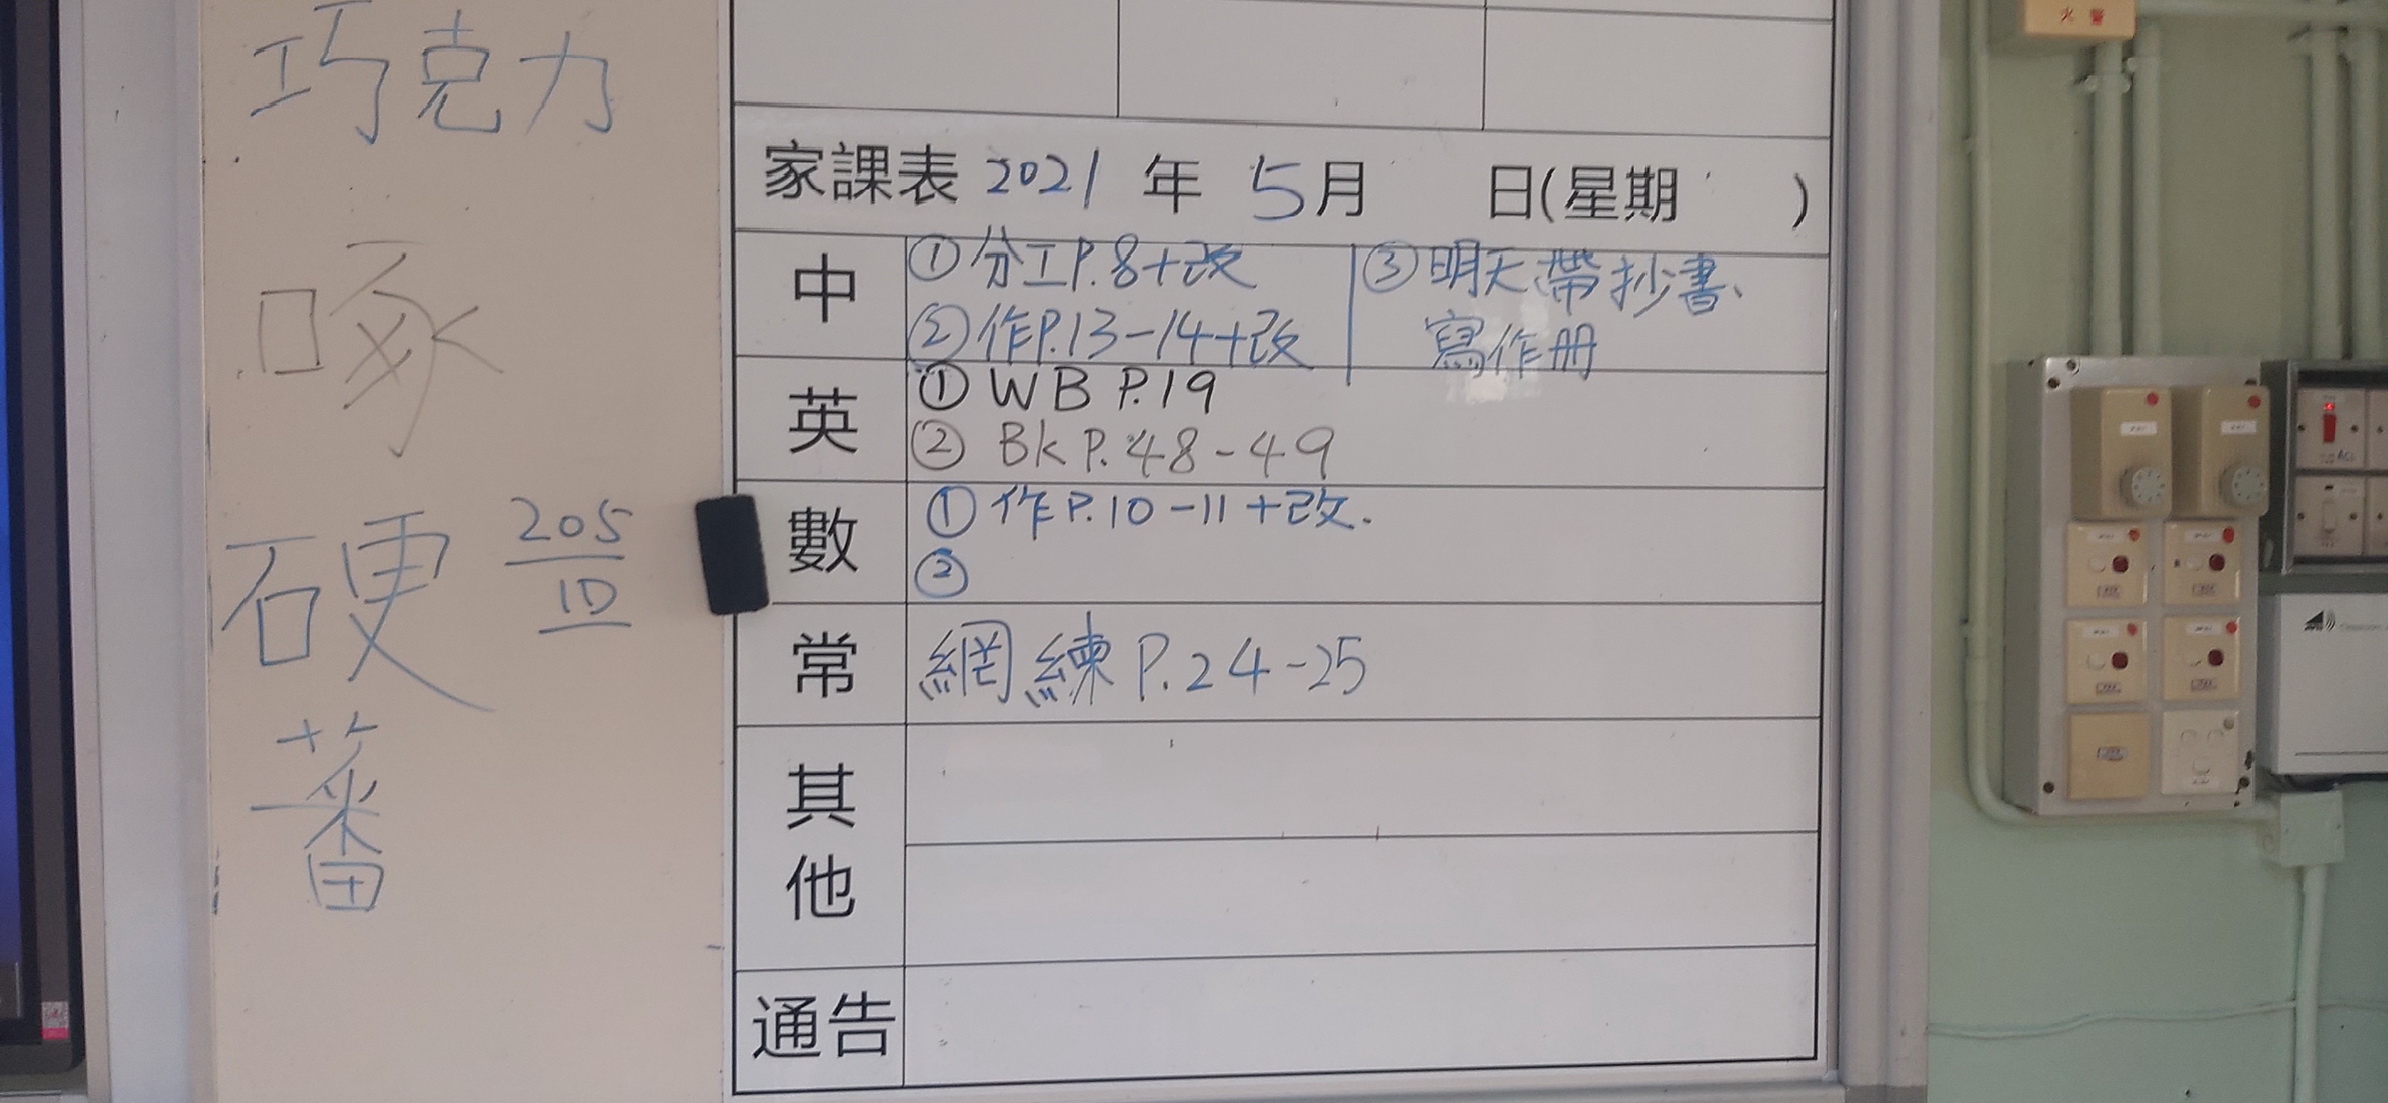 巧克力
啄
硬
205
1D
蕃
家課表 2021 年 5月 日(星期 )
中
① 分工P.8+改
② 作P.13-14+改
③ 明天帶抄書、
寫作册
英
① WB P.19
② Bk P.48-49
數
① 作P.10-11+改.
②
常
網練P.24-25
其他
通告
火警